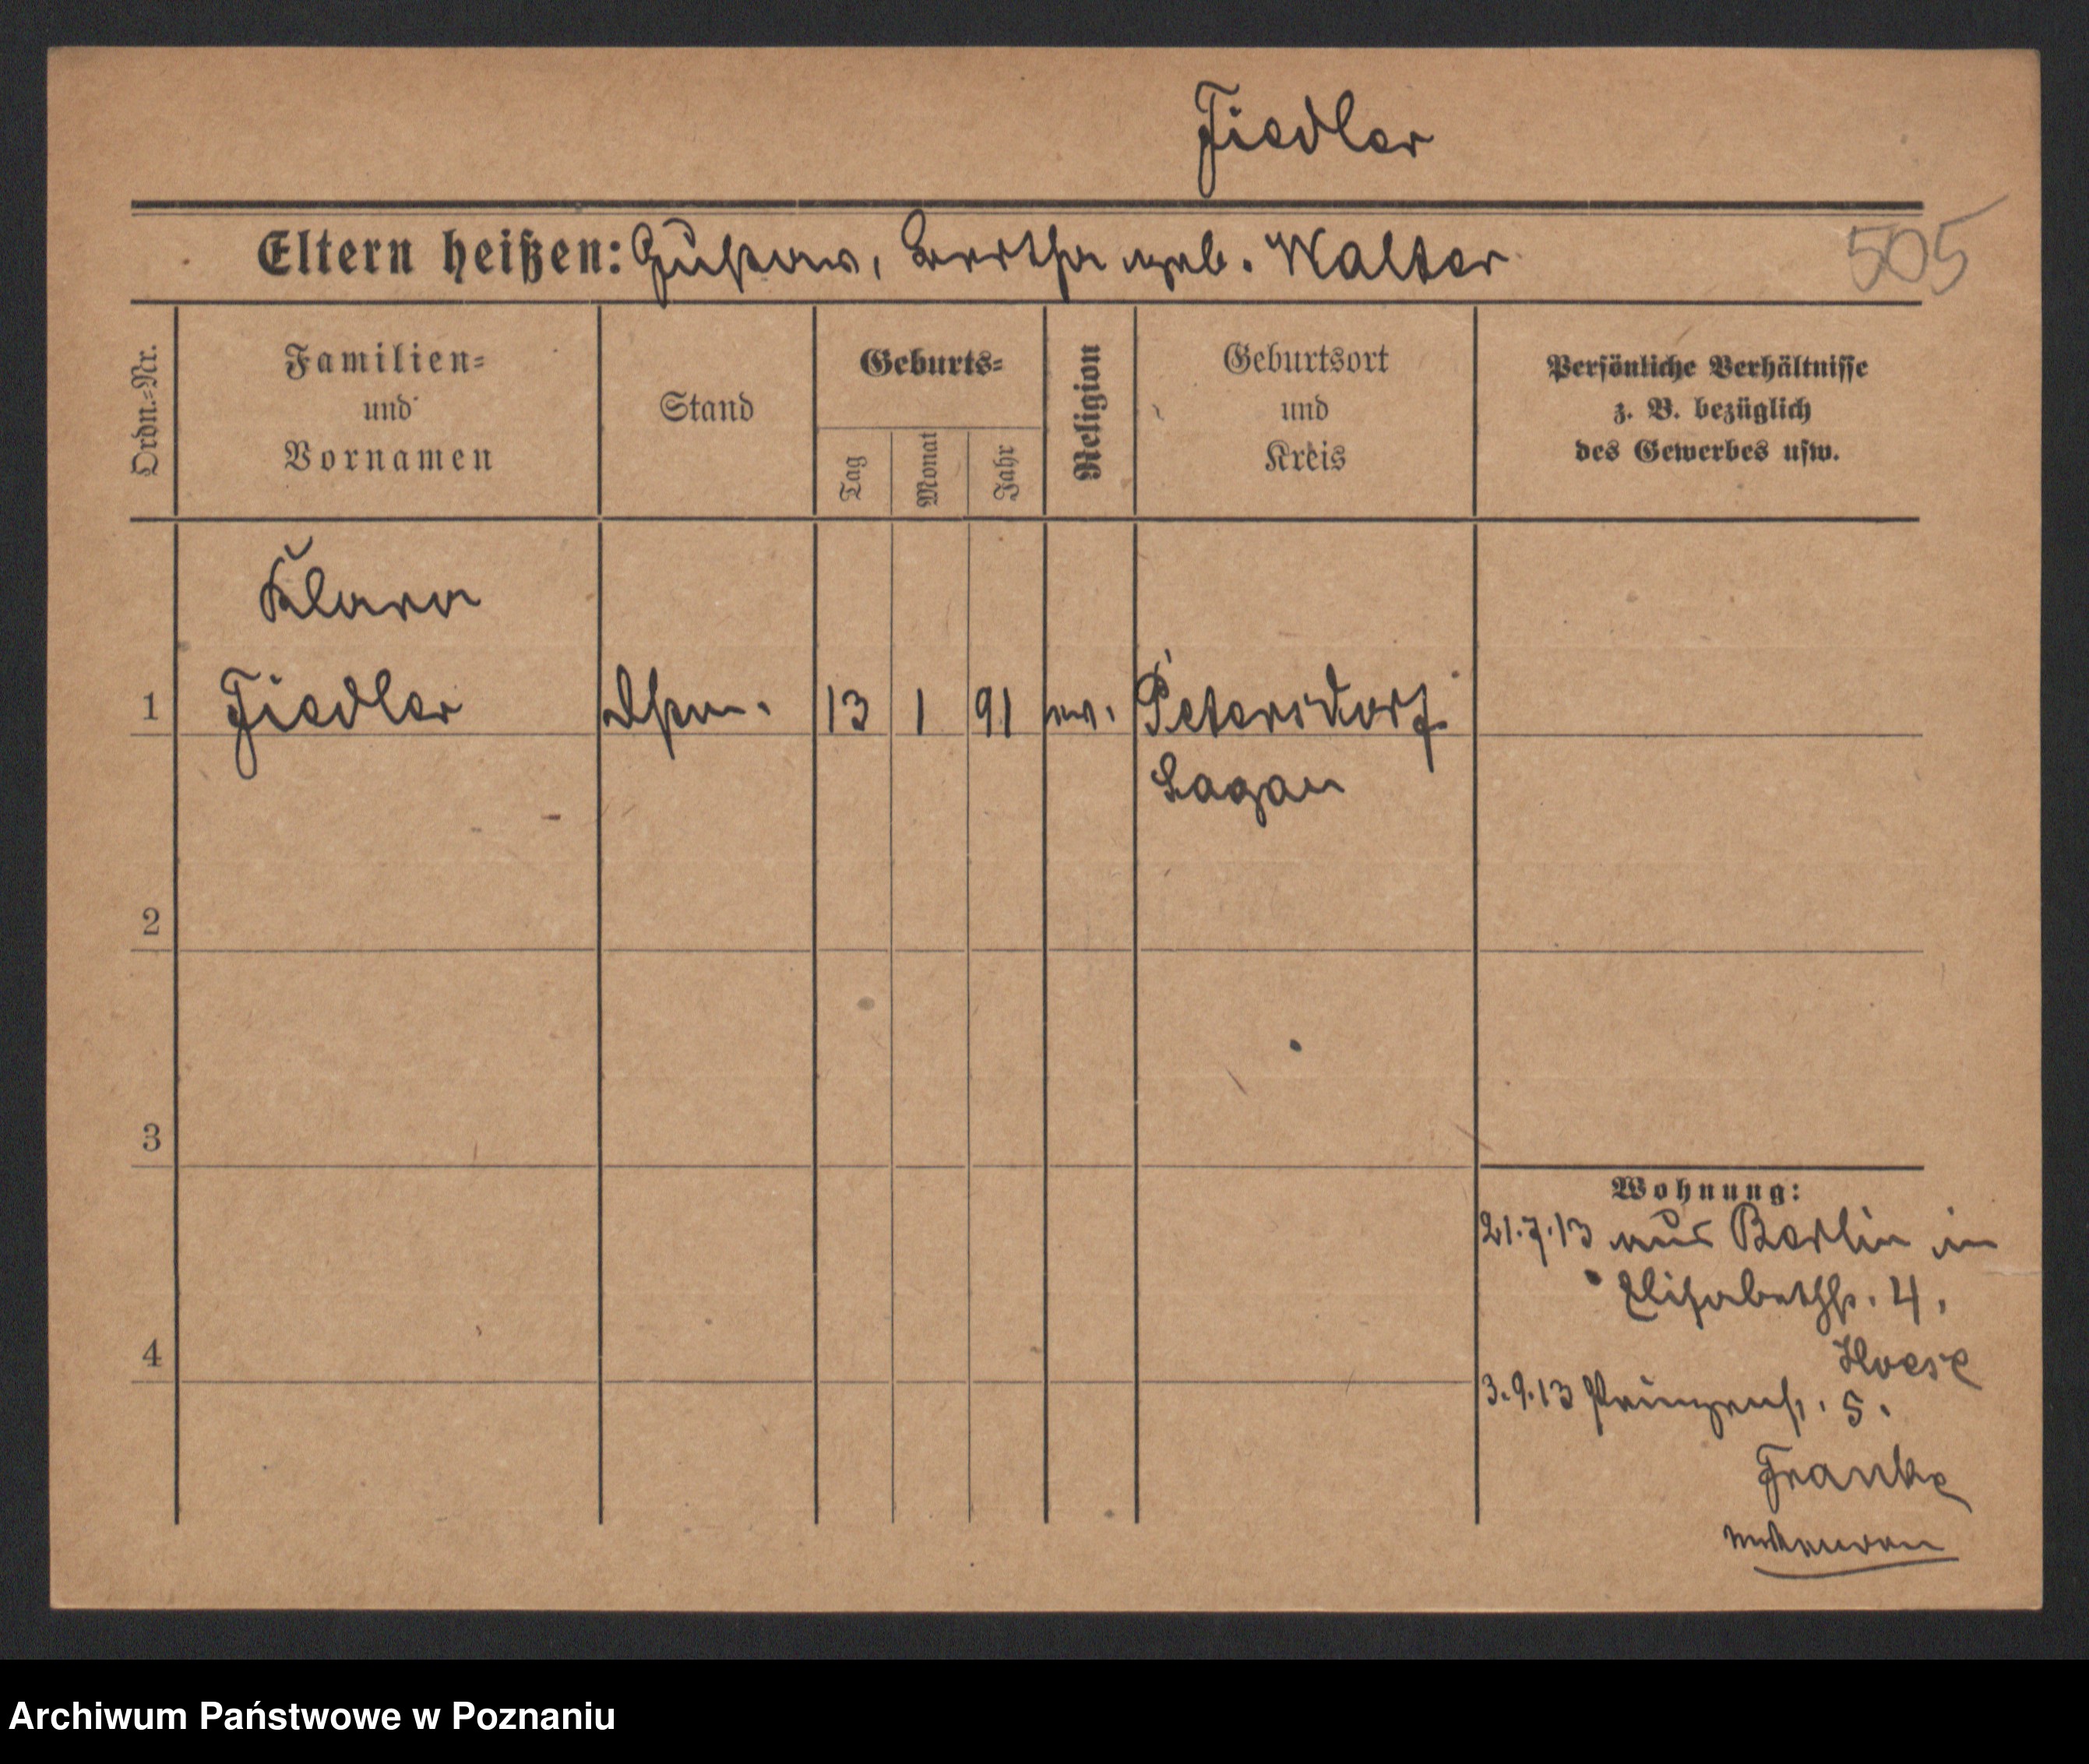 Fiedler
Eltern heißen: Gustav, Bertha geb. Walter
505
Ordn.=Nr.
Familien=
und
Vornamen
Stand
Geburts=
Tag
Monat
Jahr
Religion
Geburtsort
und
Kreis
Persönliche Verhältnisse
z. B. bezüglich
des Gewerbes usw.
Klara
1 Fiedler 13 1 91 ev. Petersdorf
Sagan
2
3
4
Wohnung:
21.7.13 aus Berlin in
Elisabethstr. 4.
3.9.13 Prinzenstr. 5.
Franke
Archiwum Państwowe w Poznaniu